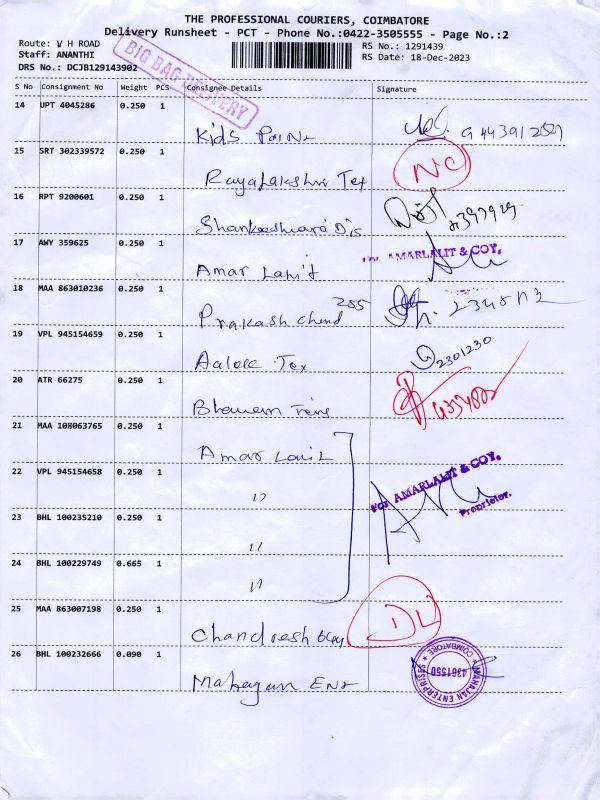 THE PROFESSIONAL COURIERS, COIMBATORE
Delivery Runsheet - PCT - Phone No.:0422-3505555 - Page No.:2
Route: V H ROAD
Staff: ANANTHI
DRS No.: DCJB129143902
RS No.: 1291439
RS Date: 18-Dec-2023
BIG BAG DELIVERY
S No Consignment No Weight PCS Consignee Details Signature
14 UPT 4045286 0.250 1
Kids
15 SRT 302339572 0.250 1
Tex NC
16 RPT 9200601 0.250 1
17 AWY 359625 0.250 1
Amar Lalit
AMARLALIT & COY.
18 MAA 863010236 0.250 1
285
Prakash Chend
19 VPL 945154659 0.250 1
Tex 2301230
20 ATR 66275 0.250 1
21 MAA 108063765 0.250 1
Amar Lalit
22 VPL 945154658 0.250 1
"
For AMARLALIT & COY.
Proprietor.
23 BHL 100235210 0.250 1
"
24 BHL 100229749 0.665 1
"
25 MAA 863007198 0.250 1
Chandresh DL
26 BHL 100232666 0.090 1
MAHAJAN ENTERPRISES
COIMBATORE
4361550